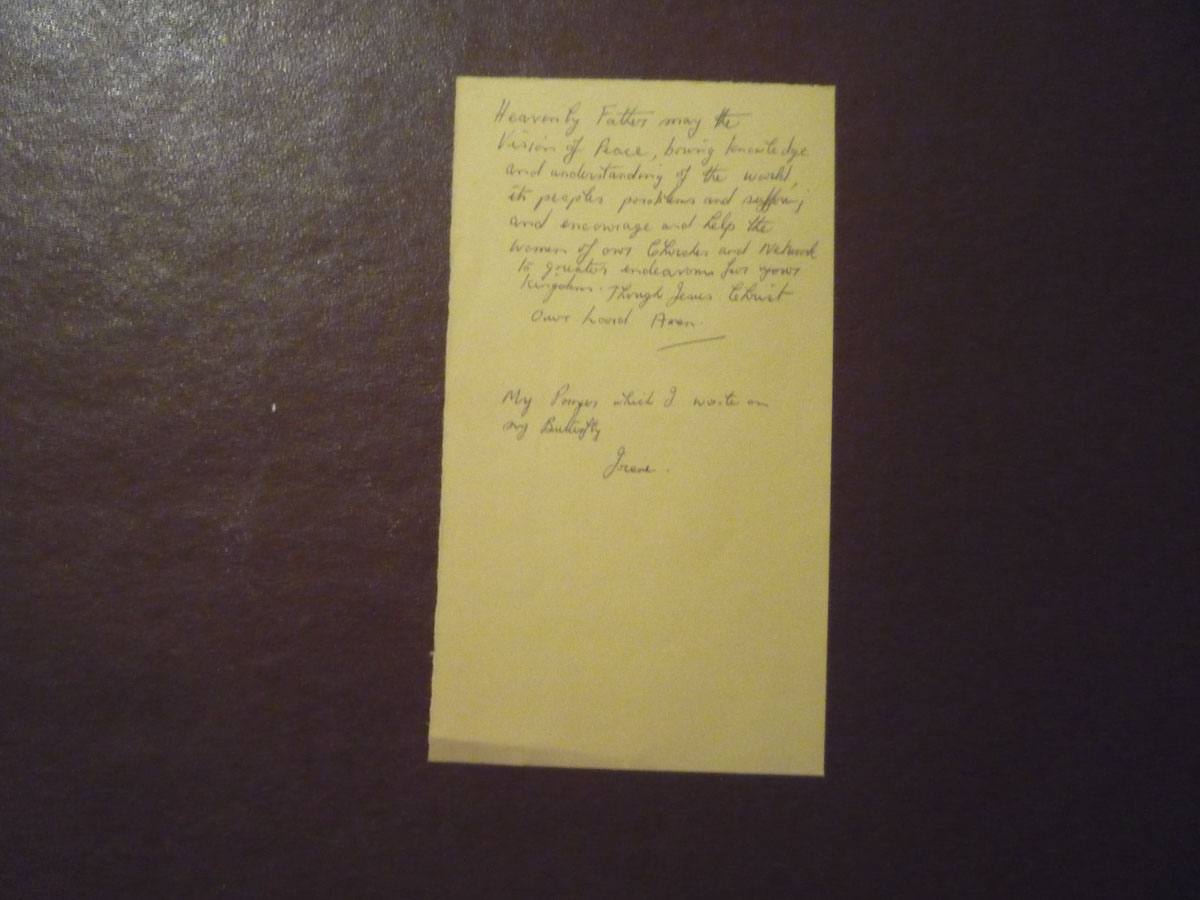 Heavenly Father may the
Vision of Peace, bring knowledge
and understanding of the world,
its peoples problems and suffering
and encourage and help the
women of our Churches and Network
to greater endeavours for your
kingdom. Through Jesus Christ
Our Lord Amen.
My Prayer which I wrote on
my Butterfly
Irene.